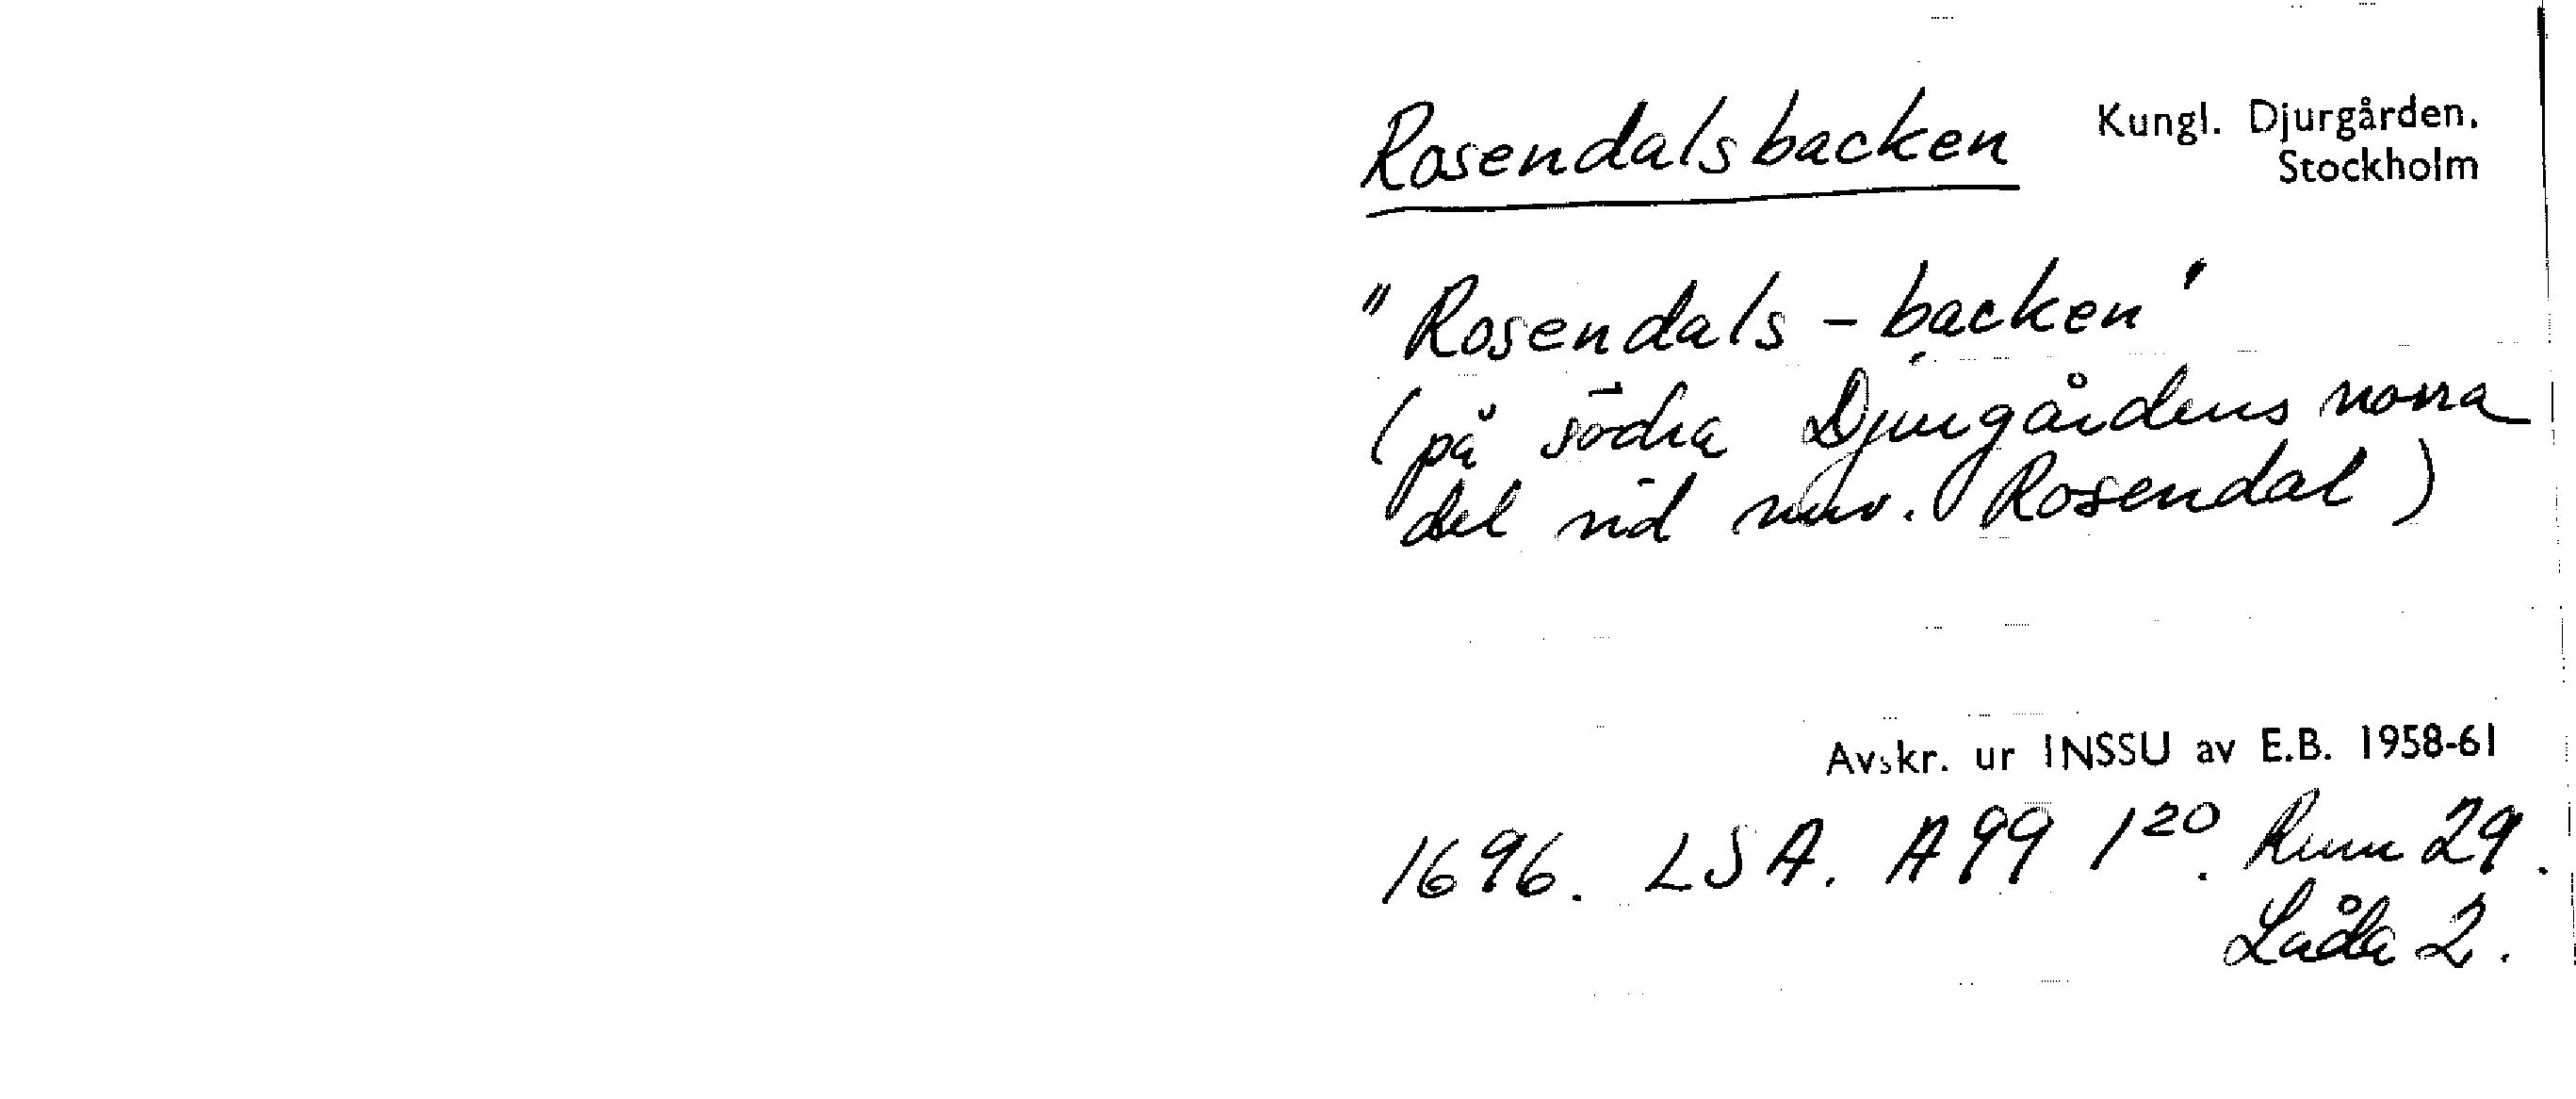 Rosendalsbacken
Kungl. Djurgården.
Stockholm
"Rosendals - backen"
(på södra Djurgårdens norra
del vid nuv. Rosendal)
Avskr. ur INSSU av E.B. 1958-61
1696. LSA. A99 1²⁰. Rum 29.
Låda 2.